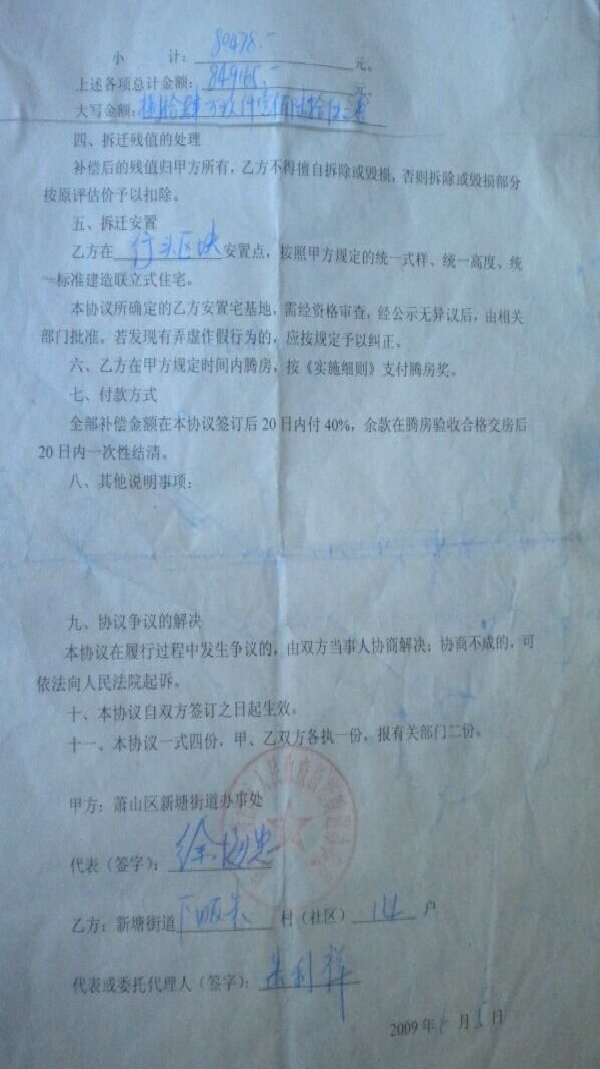 小 计： 80478.- 元。
上述各项总计金额： 849165.- 元。
大写金额：
四、拆迁残值的处理
补偿后的残值归甲方所有，乙方不得擅自拆除或毁损，否则拆除或毁损部分
按原评估价予以扣除。
五、拆迁安置
乙方在 行头区块 安置点，按照甲方规定的统一式样、统一高度、统
一标准建造联立式住宅。
本协议所确定的乙方安置宅基地，需经资格审查，经公示无异议后，由相关
部门批准。若发现有弄虚作假行为的，应按规定予以纠正。
六、乙方在甲方规定时间内腾房，按《实施细则》支付腾房奖。
七、付款方式
全部补偿金额在本协议签订后 20 日内付 40%，余款在腾房验收合格交房后
20 日内一次性结清。
八、其他说明事项：
九、协议争议的解决
本协议在履行过程中发生争议的，由双方当事人协商解决；协商不成的，可
依法向人民法院起诉。
十、本协议自双方签订之日起生效。
十一、本协议一式四份，甲、乙双方各执一份，报有关部门二份。
甲方：萧山区新塘街道办事处
代表（签字）：徐
乙方：新塘街道 下畈朱 村（社区） 14 户
代表或委托代理人（签字）：朱利祥
2009 年 月 5 日